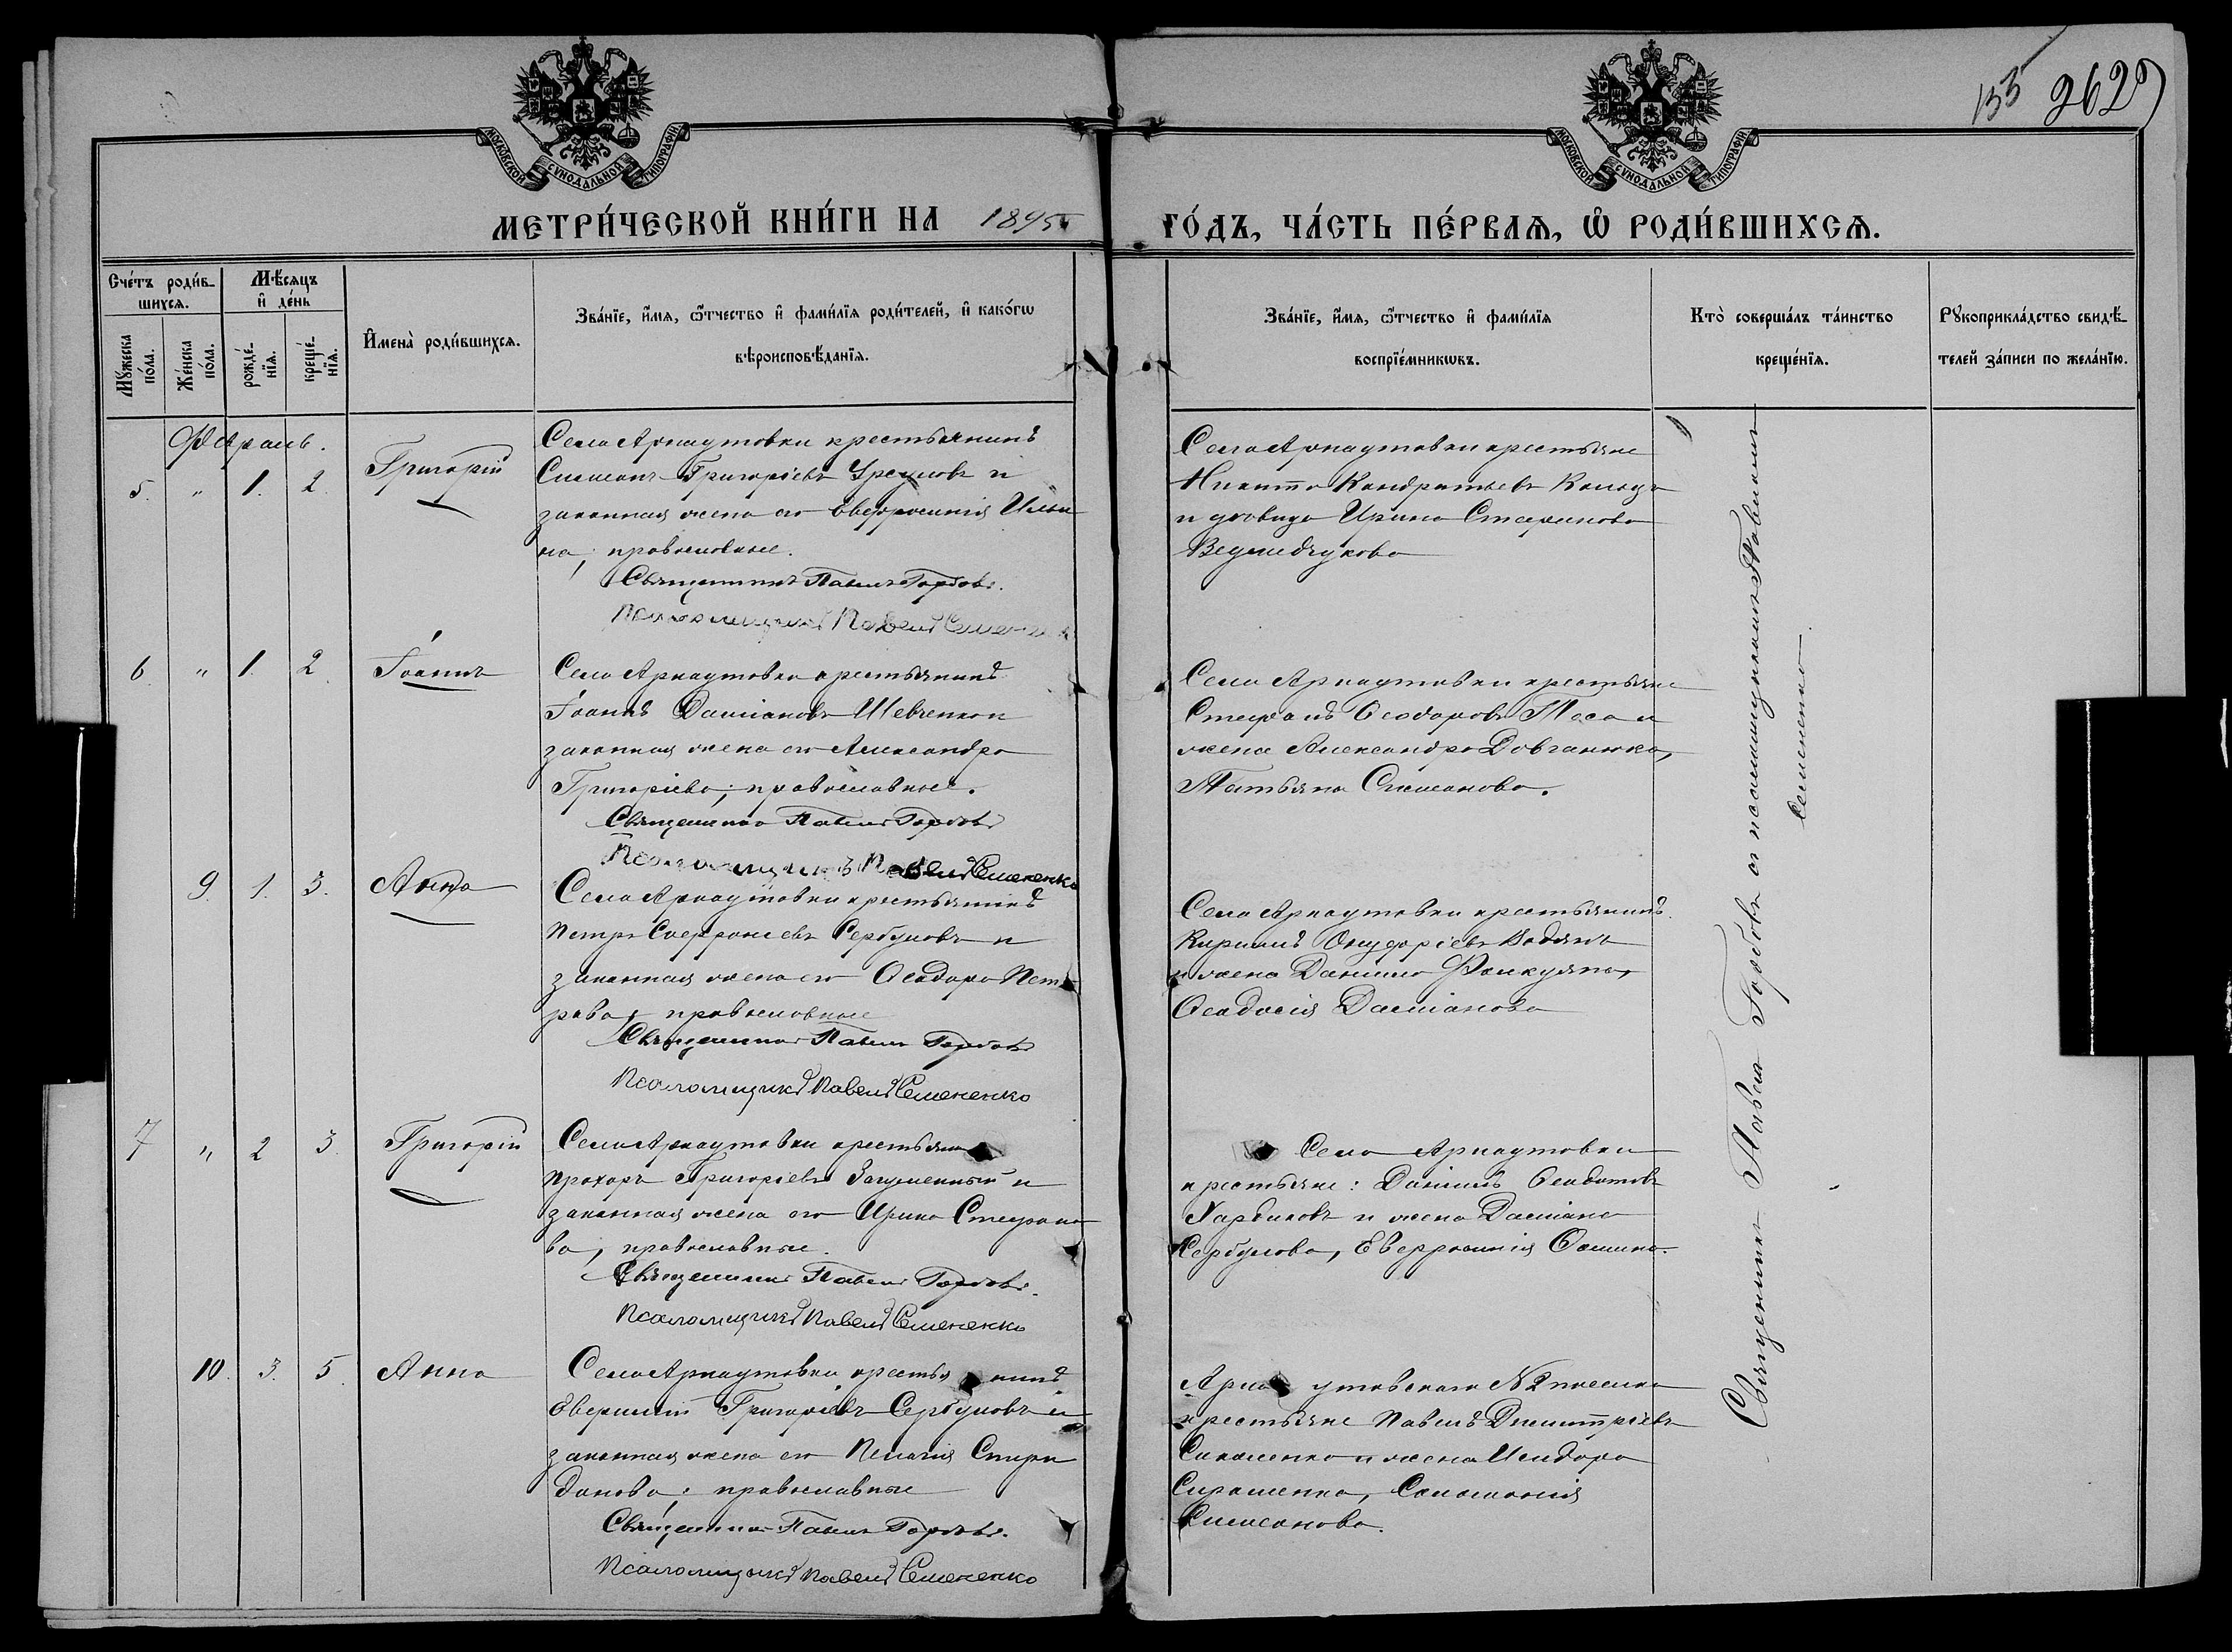 МОСКОВСКОЙ СУНОДАЛЬНОЙ ТИПОГРАФІИ
МОСКОВСКОЙ СУНОДАЛЬНОЙ ТИПОГРАФІИ
135 262
МЕТРИ́ЧЕСКОЙ КНИ́ГИ НА 1895
ГО́ДЪ, ЧА́СТЬ ПЕ́РВАѦ, Ѡ РОДИ́ВШИХСѦ.
Сче́тъ роди́в-
шихсѧ.
Мѣ́сяцъ
и де́нь
Мꙋ́жеска
по́ла.
Же́нска
по́ла.
рожде́-
нїѧ.
креще́-
нїѧ.
Имена̀ роди́вшихсѧ.
Зва́нїе, и́мѧ, ѻ́тчество и фами́лїѧ роди́телей, и како́гѡ
вѣроисповѣ́данїѧ.
Зва́нїе, и́мѧ, ѻ́тчество и фами́лїѧ
воспрїе́мникѡвъ.
Кто̀ соверша́лъ та́инство
креще́нїѧ.
Рꙋкоприкла́дство свидѣ́-
телей за́писи по жела́нїю.
Февраль.
5. " 1. 2.
Григорій
Села Арнаутовки крестьянинъ
Симеонъ Григоріевъ Урсуловъ и
законная жена его Евфросинія Ильи
на, православные.
Священникъ Павелъ Горбовъ.
Псаломщикъ Павелъ Семененко
Села Арнаутовки крестьяне
Никита Кондратьевъ
и вдовица Ирина Стефанова
Ведмедчукова
6. " 1. 2.
Іоаннъ
Села Арнаутовки крестьянинъ
Іоаннъ Даміановъ Шевченко и
законная жена его Александра
Григоріева, православные.
Священникъ Павелъ Горбовъ
Псаломщикъ Павелъ Семененко
Села Арнаутовки крестьяне
Стефанъ Ѳеодоровъ и
жена Александра Довганюка,
Татьяна Симеонова.
9. 1. 3.
Анна
Села Арнаутовки крестьянинъ
Петръ Софроніевъ Сербуловъ и
законная жена его Ѳеодора Пет
рова, православные
Священникъ Павелъ Горбовъ
Псаломщикъ Павелъ Семененко
Села Арнаутовки крестьянинъ
Кириллъ Онуфріевъ Водянъ
и жена Даніила
Ѳеодосія Даміанова
7 " 2 3.
Григорій
Села Арнаутовки крестьянинъ
Прохоръ Григоріевъ Загуменный и
законная жена его Ирина Стефано
ва, православные.
Священникъ Павелъ Горбовъ.
Псаломщикъ Павелъ Семененко
Села Арнаутовки
крестьяне: Даніилъ Ѳеодотовъ
и жена Даміана
Сербулова, Евфросинія Ѳомина.
10. 3. 5.
Анна
Села Арнаутовки крестьянинъ
Григоріевъ Сербуловъ и
законная жена его Пелагія Спири
донова; православные
Священникъ Павелъ Горбовъ.
Псаломщикъ Павелъ Семененко
Арнаутовскаго №2 поселка
крестьяне Павелъ Димитріевъ
и жена Исидора
Сироменка, Соломонія
Симеонова.
Священникъ Павелъ Горбовъ съ псаломщикомъ Павломъ
Семененко.